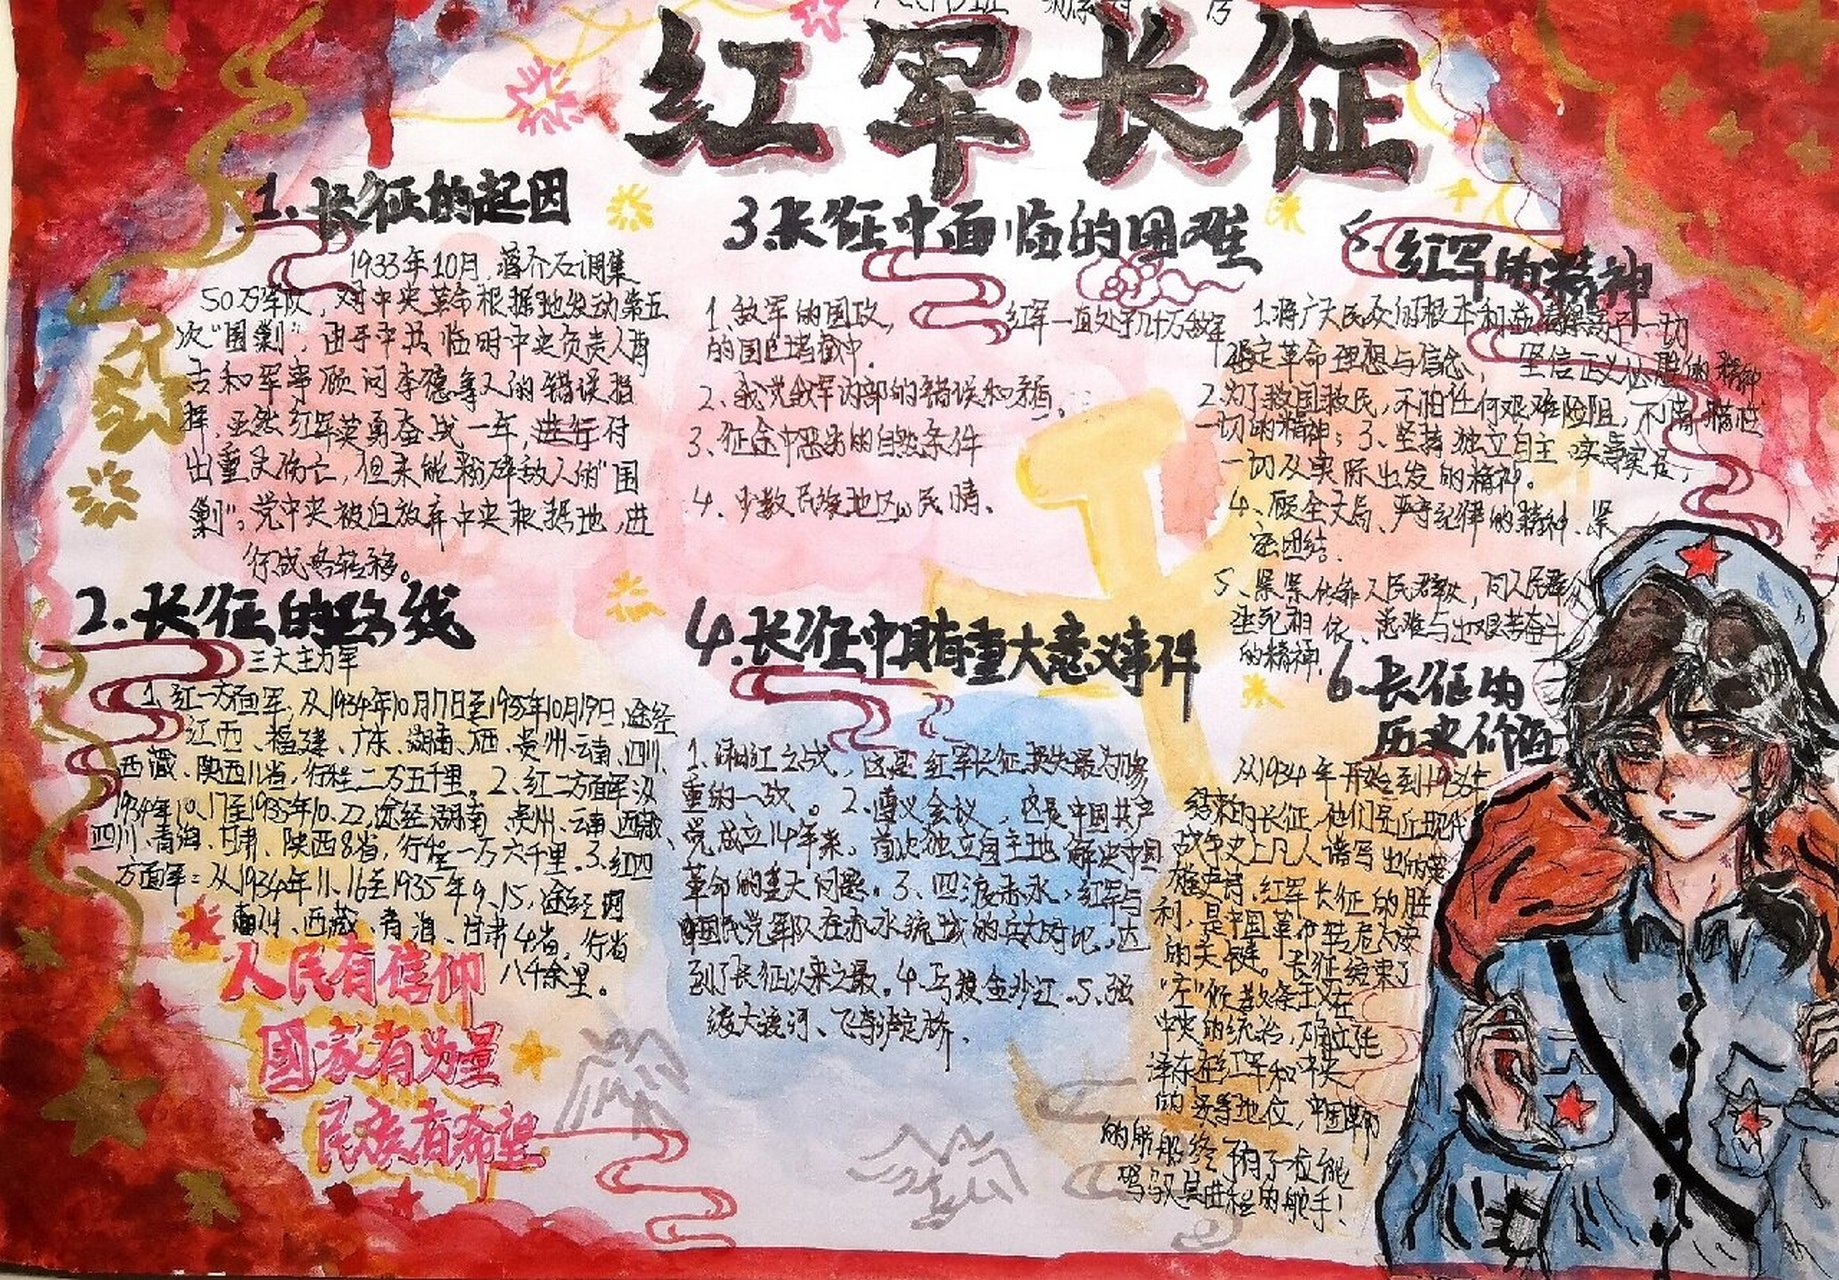 红军·长征
1.长征的起因
1933年10月,蒋介石调集
50万军队,对中央革命根据地发动第五
次“围剿”。由于中共临时中央负责人博
古和军事顾问李德等人的错误指
挥,虽然红军英勇奋战一年,进行付
出重大伤亡,但未能粉碎敌人的“围
剿”,党中央被迫放弃中央根据地,进
行战略转移。
2.长征的路线
三大主力军
1.红一方面军,从1934年10月17日至1935年10月19日,途经
江西、福建、广东、湖南、广西、贵州、云南、四川、
西藏、陕西11省,行程二万五千里。2、红二方面军
1934年10.17至1935年10.22,途经湖南、贵州、云南、西藏、
四川、青海、甘肃、陕西8省,行程一万六千里。3、红四
方面军:从1934年11.16至1935年9.15,途经四
川、西藏、青海、甘肃4省,行省
八千余里。
人民有信仰
国家有力量
民族有希望
3.长征中面临的困难
1、敌军的围攻,红军一直处于几十万敌军
的围追堵截中.
2、我党我军内部的错误和矛盾。
3、征途中恶劣的自然条件
4、少数民族地区的民情、
4.长征中具有重大意义事件
1、湘江之战,这是红军长征损失最为惨
重的一战。2、遵义会议,这是中国共产
党成立14年来,首次独立自主地解决中国
革命的重大问题。3、四渡赤水:红军与
国民党军队在赤水流域的兵力对比,达
到了长征以来之最。4、巧渡金沙江.5、强
渡大渡河、飞夺泸定桥.
5.红军的精神
1.将广大民众的根本利益看得高于一切
坚定革命理想与信念,坚信正义必胜的精神
2.为了救国救民,不怕任何艰难险阻,不惜牺牲
一切的精神;3、坚持独立自主,实事求是,
一切从实际出发的精神。
4、顾全大局、严守纪律的精神、紧
密团结.
5、紧紧依靠人民群众,同人民群众
生死相依、患难与共艰苦奋斗
的精神.
6.长征的
历史价值
从1934年开始到1936年
结束的长征,他们是近现代
战争史上凡人谱写出的英
雄史诗.红军长征的胜
利,是中国革命转危为安
的关键。长征结束了
“左”倾教条主义在
中央的统治,确立毛
泽东在红军和中央
的领导地位,中国革命
的航船终于有了一位能
驾驭其进程的舵手!